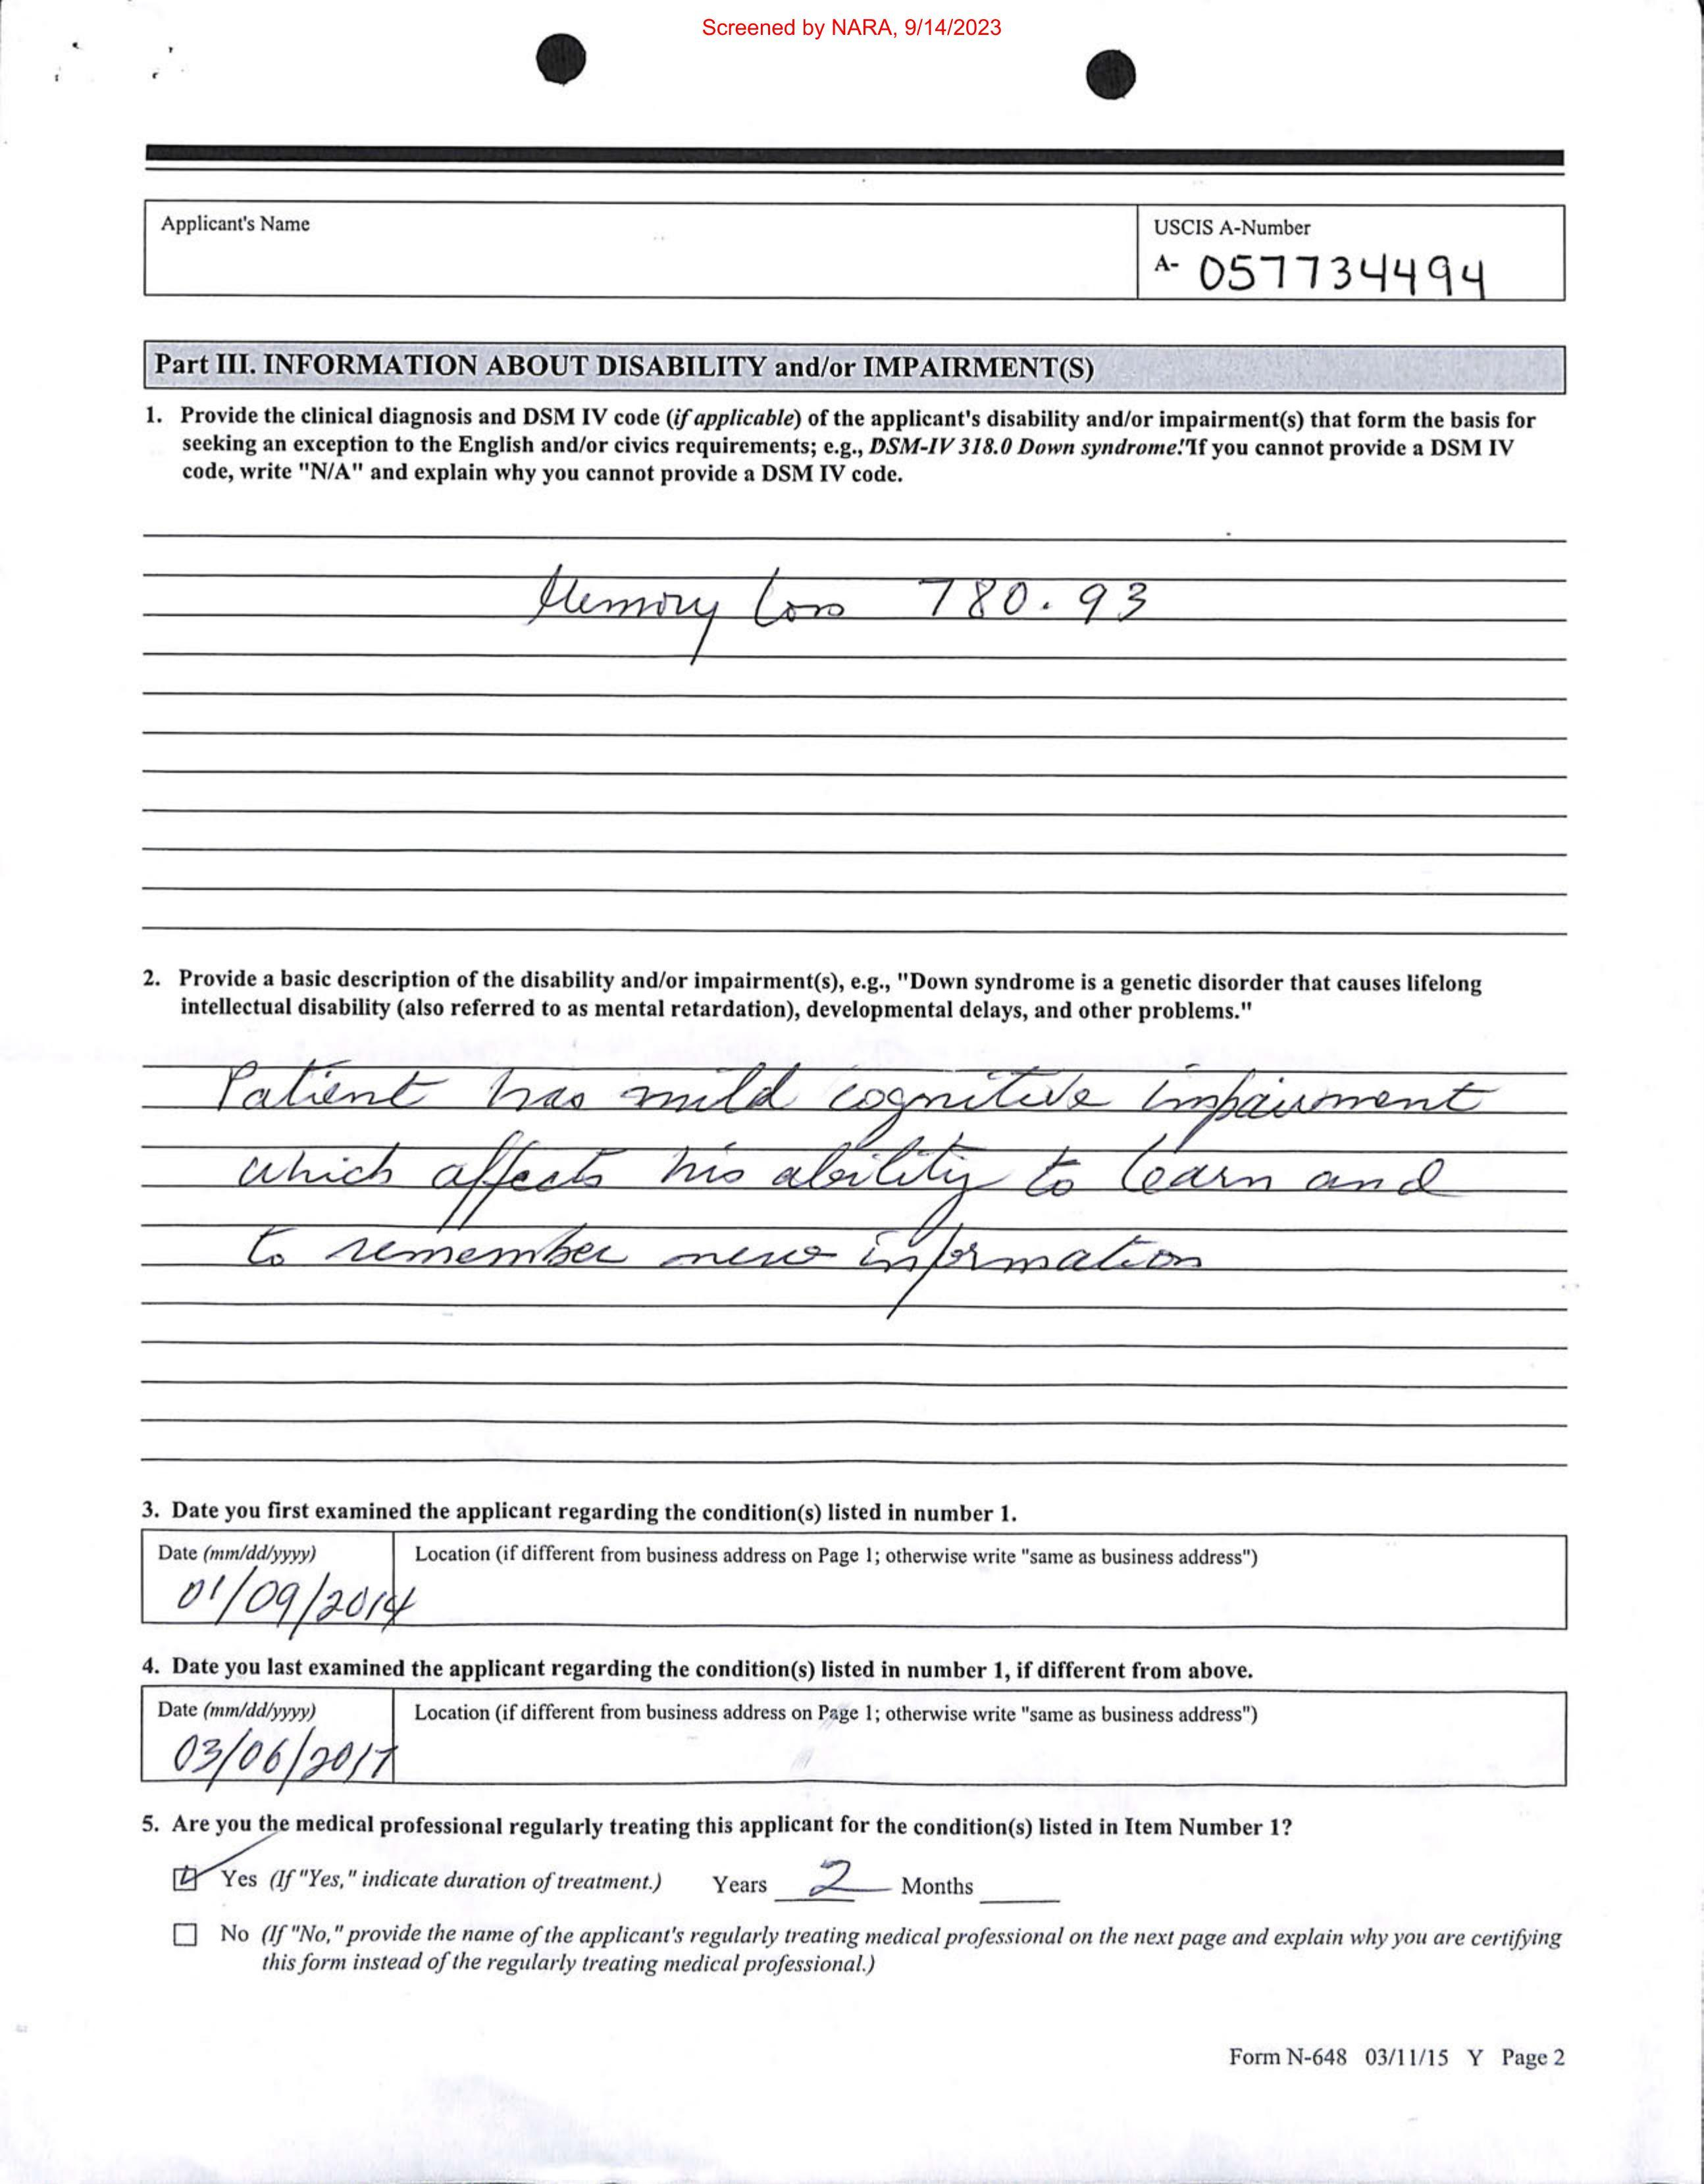 Screened by NARA, 9/14/2023
Applicant's Name
USCIS A-Number
A- 057734494
Part III. INFORMATION ABOUT DISABILITY and/or IMPAIRMENT(S)
1. Provide the clinical diagnosis and DSM IV code (if applicable) of the applicant's disability and/or impairment(s) that form the basis for
seeking an exception to the English and/or civics requirements; e.g., DSM-IV 318.0 Down syndrome." If you cannot provide a DSM IV
code, write "N/A" and explain why you cannot provide a DSM IV code.
Memory Loss 780.93
2. Provide a basic description of the disability and/or impairment(s), e.g., "Down syndrome is a genetic disorder that causes lifelong
intellectual disability (also referred to as mental retardation), developmental delays, and other problems."
Patient has mild cognitive impairment
which affects his ability to learn and
to remember new information
3. Date you first examined the applicant regarding the condition(s) listed in number 1.
Date (mm/dd/yyyy)
Location (if different from business address on Page 1; otherwise write "same as business address")
01/09/2014
4. Date you last examined the applicant regarding the condition(s) listed in number 1, if different from above.
Date (mm/dd/yyyy)
Location (if different from business address on Page 1; otherwise write "same as business address")
03/06/2017
5. Are you the medical professional regularly treating this applicant for the condition(s) listed in Item Number 1?
Yes (If "Yes," indicate duration of treatment.) Years 2 Months
No (If "No," provide the name of the applicant's regularly treating medical professional on the next page and explain why you are certifying
this form instead of the regularly treating medical professional.)
Form N-648 03/11/15 Y Page 2